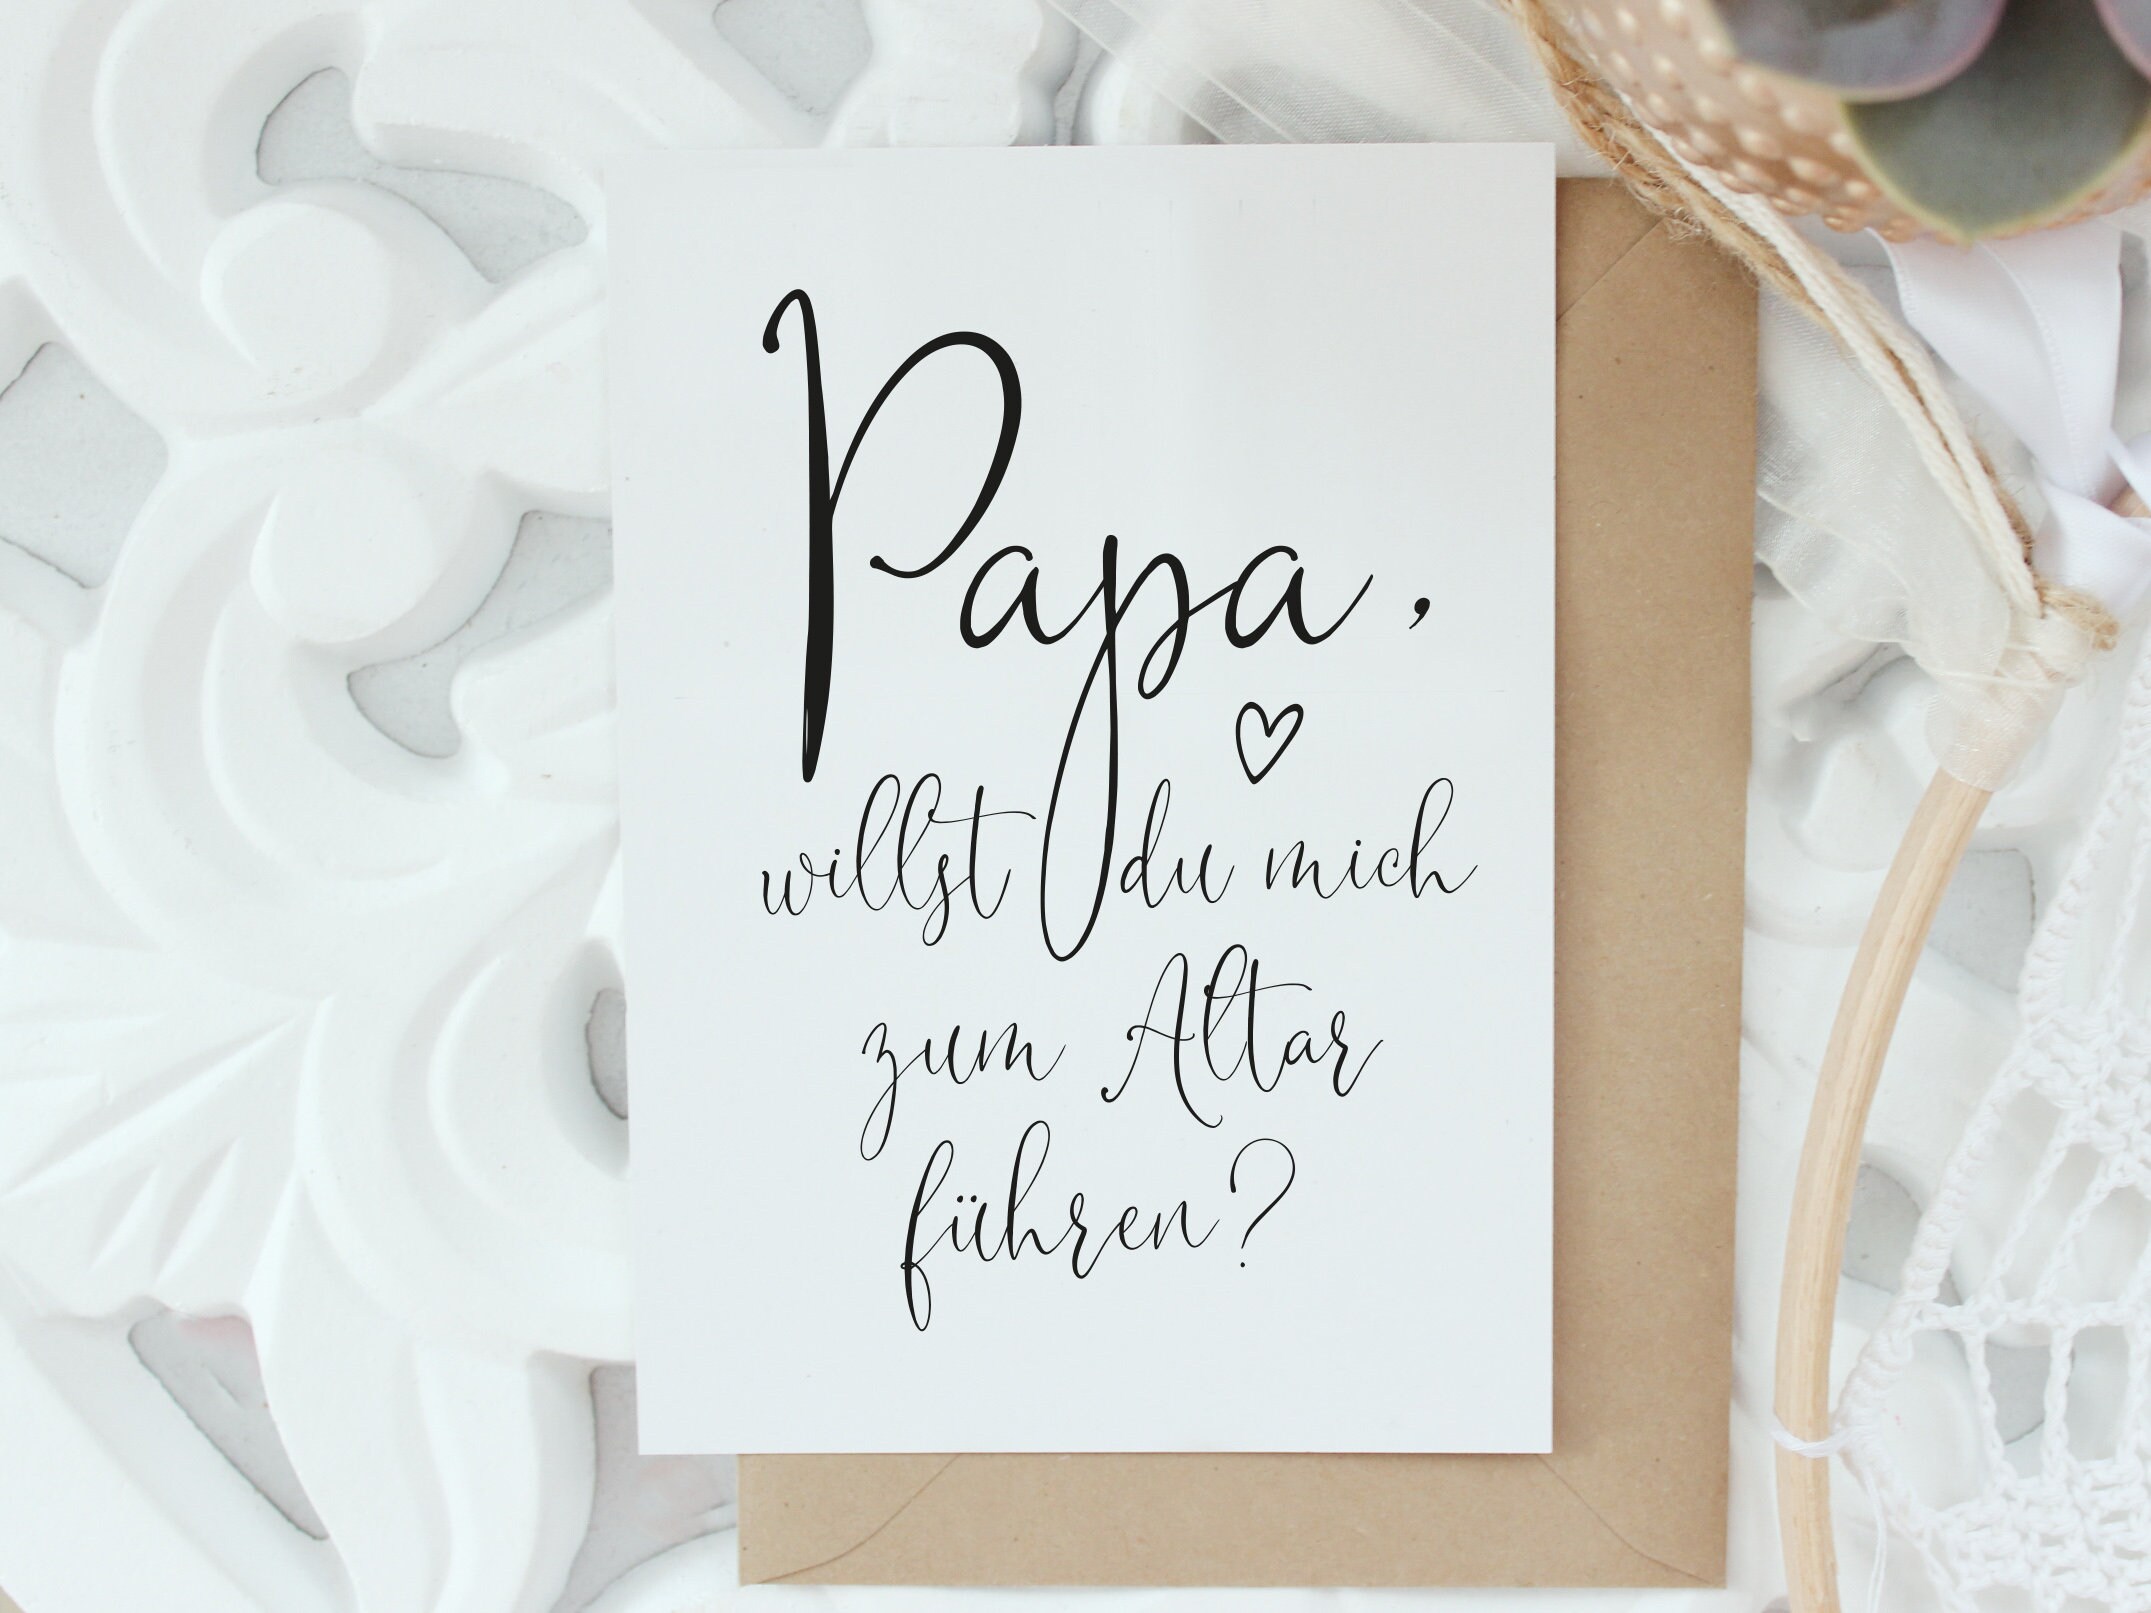 Papa,
willst du mich
zum Altar
führen?